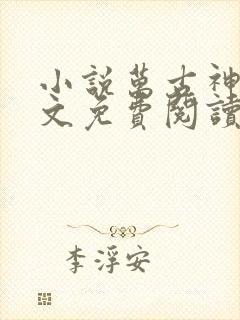 小説萬古神
文免費閱讀
李浮安